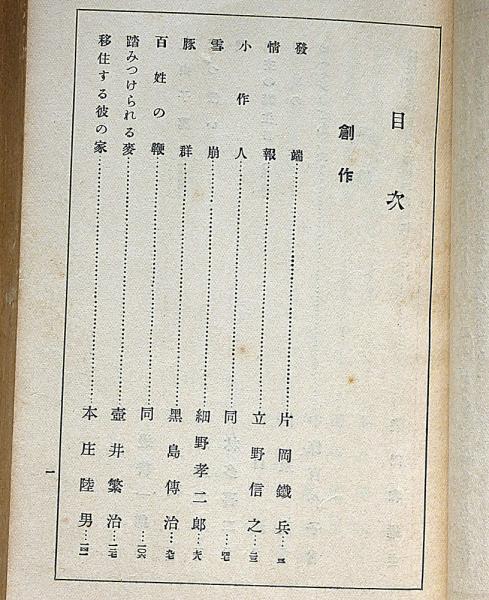 目次
創作
發端……片岡鐵兵…
情報……立野信之…
小作人……同…
雪崩……細野孝二郎…
豚群……黑島傳治…
百姓の鞭……同…一〇六
踏みつけられる麥……壺井繁治…
移住する彼の家……本庄陸男…
一